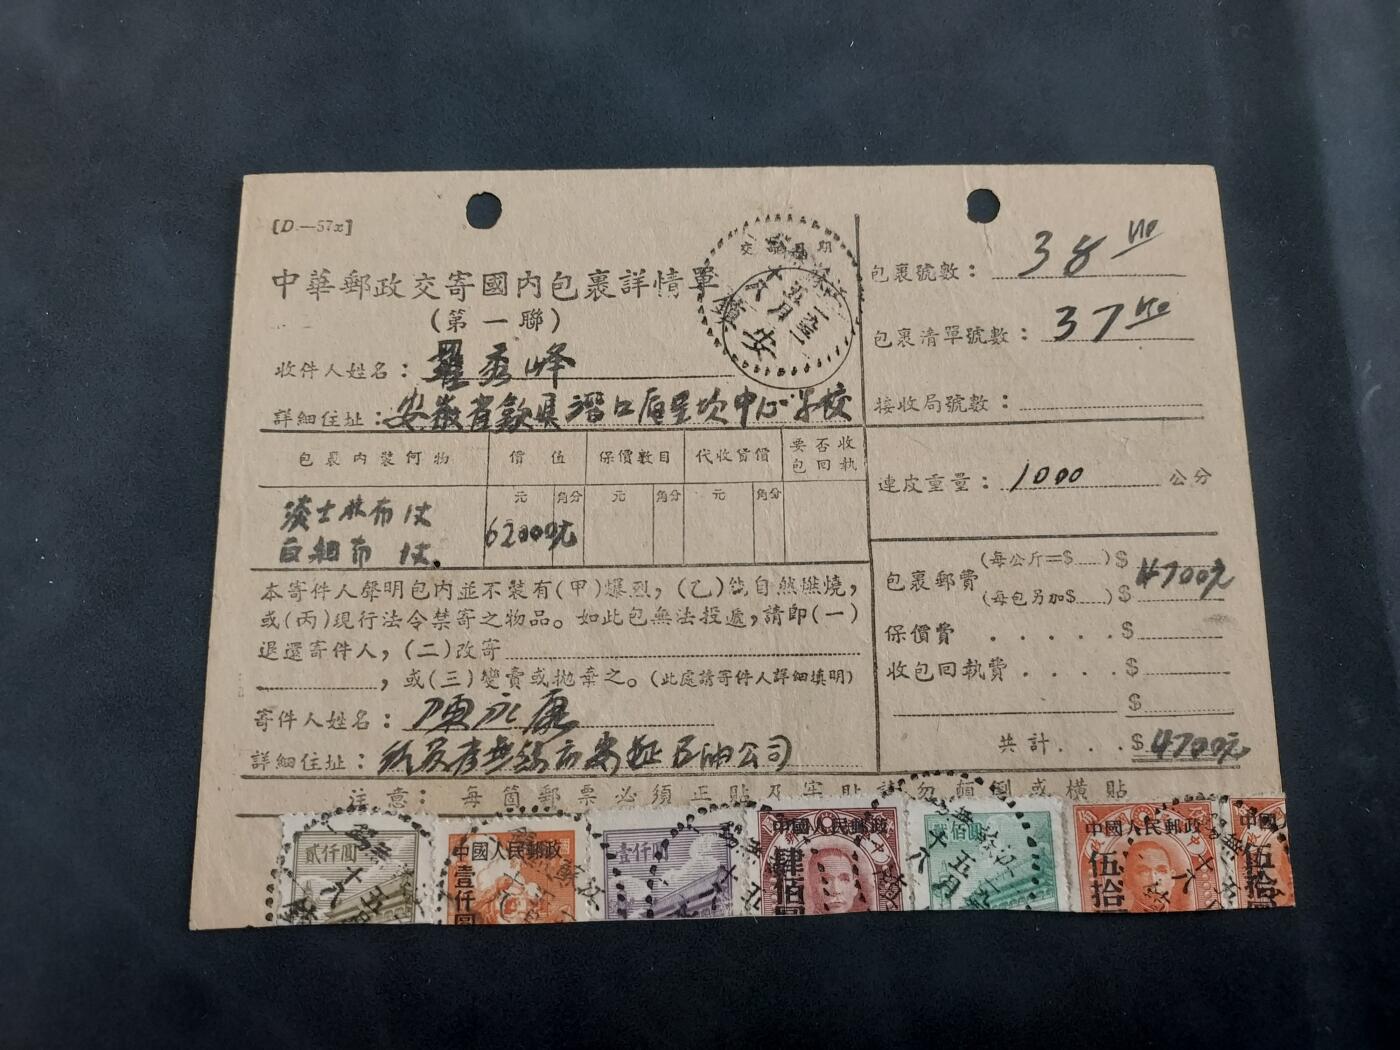 [D.—57x]
中華郵政交寄國內包裹詳情單
(第一聯)
收件人姓名：羅秀峰
詳細住址：安徽省歙縣潛口區呈坎中心學校
包裹內裝何物
價值
保價數目
代收貨價
要否收包回執
元 角分 元 角分 元 角分
淡士林布 1丈
白細布 1丈.
62000元
本寄件人聲明包內並不裝有(甲)爆烈，(乙)能自然燃燒，
或(丙)現行法令禁寄之物品。如此包無法投遞，請即(一)
退還寄件人，(二)改寄
，或(三)變賣或拋棄之。(此處請寄件人詳細填明)
寄件人姓名：陳永康
詳細住址：無錫市 石油公司
注意：每箇郵票必須正貼及牢貼請勿顛倒或橫貼
包裹號數：38
包裹清單號數：37
接收局號數：
連皮重量：1000 公分
包裹郵費
(每公斤=$....)$
(每包另加$....)$
4700元
保價費 . . . . . $
收包回執費 . . . . $
$
共計 . . . $ 4700元
貳仟圓
中國人民郵政
壹仟圓
壹仟圓
中國人民郵政
肆佰
佰圓
中國人民郵政
伍拾
中國
伍拾